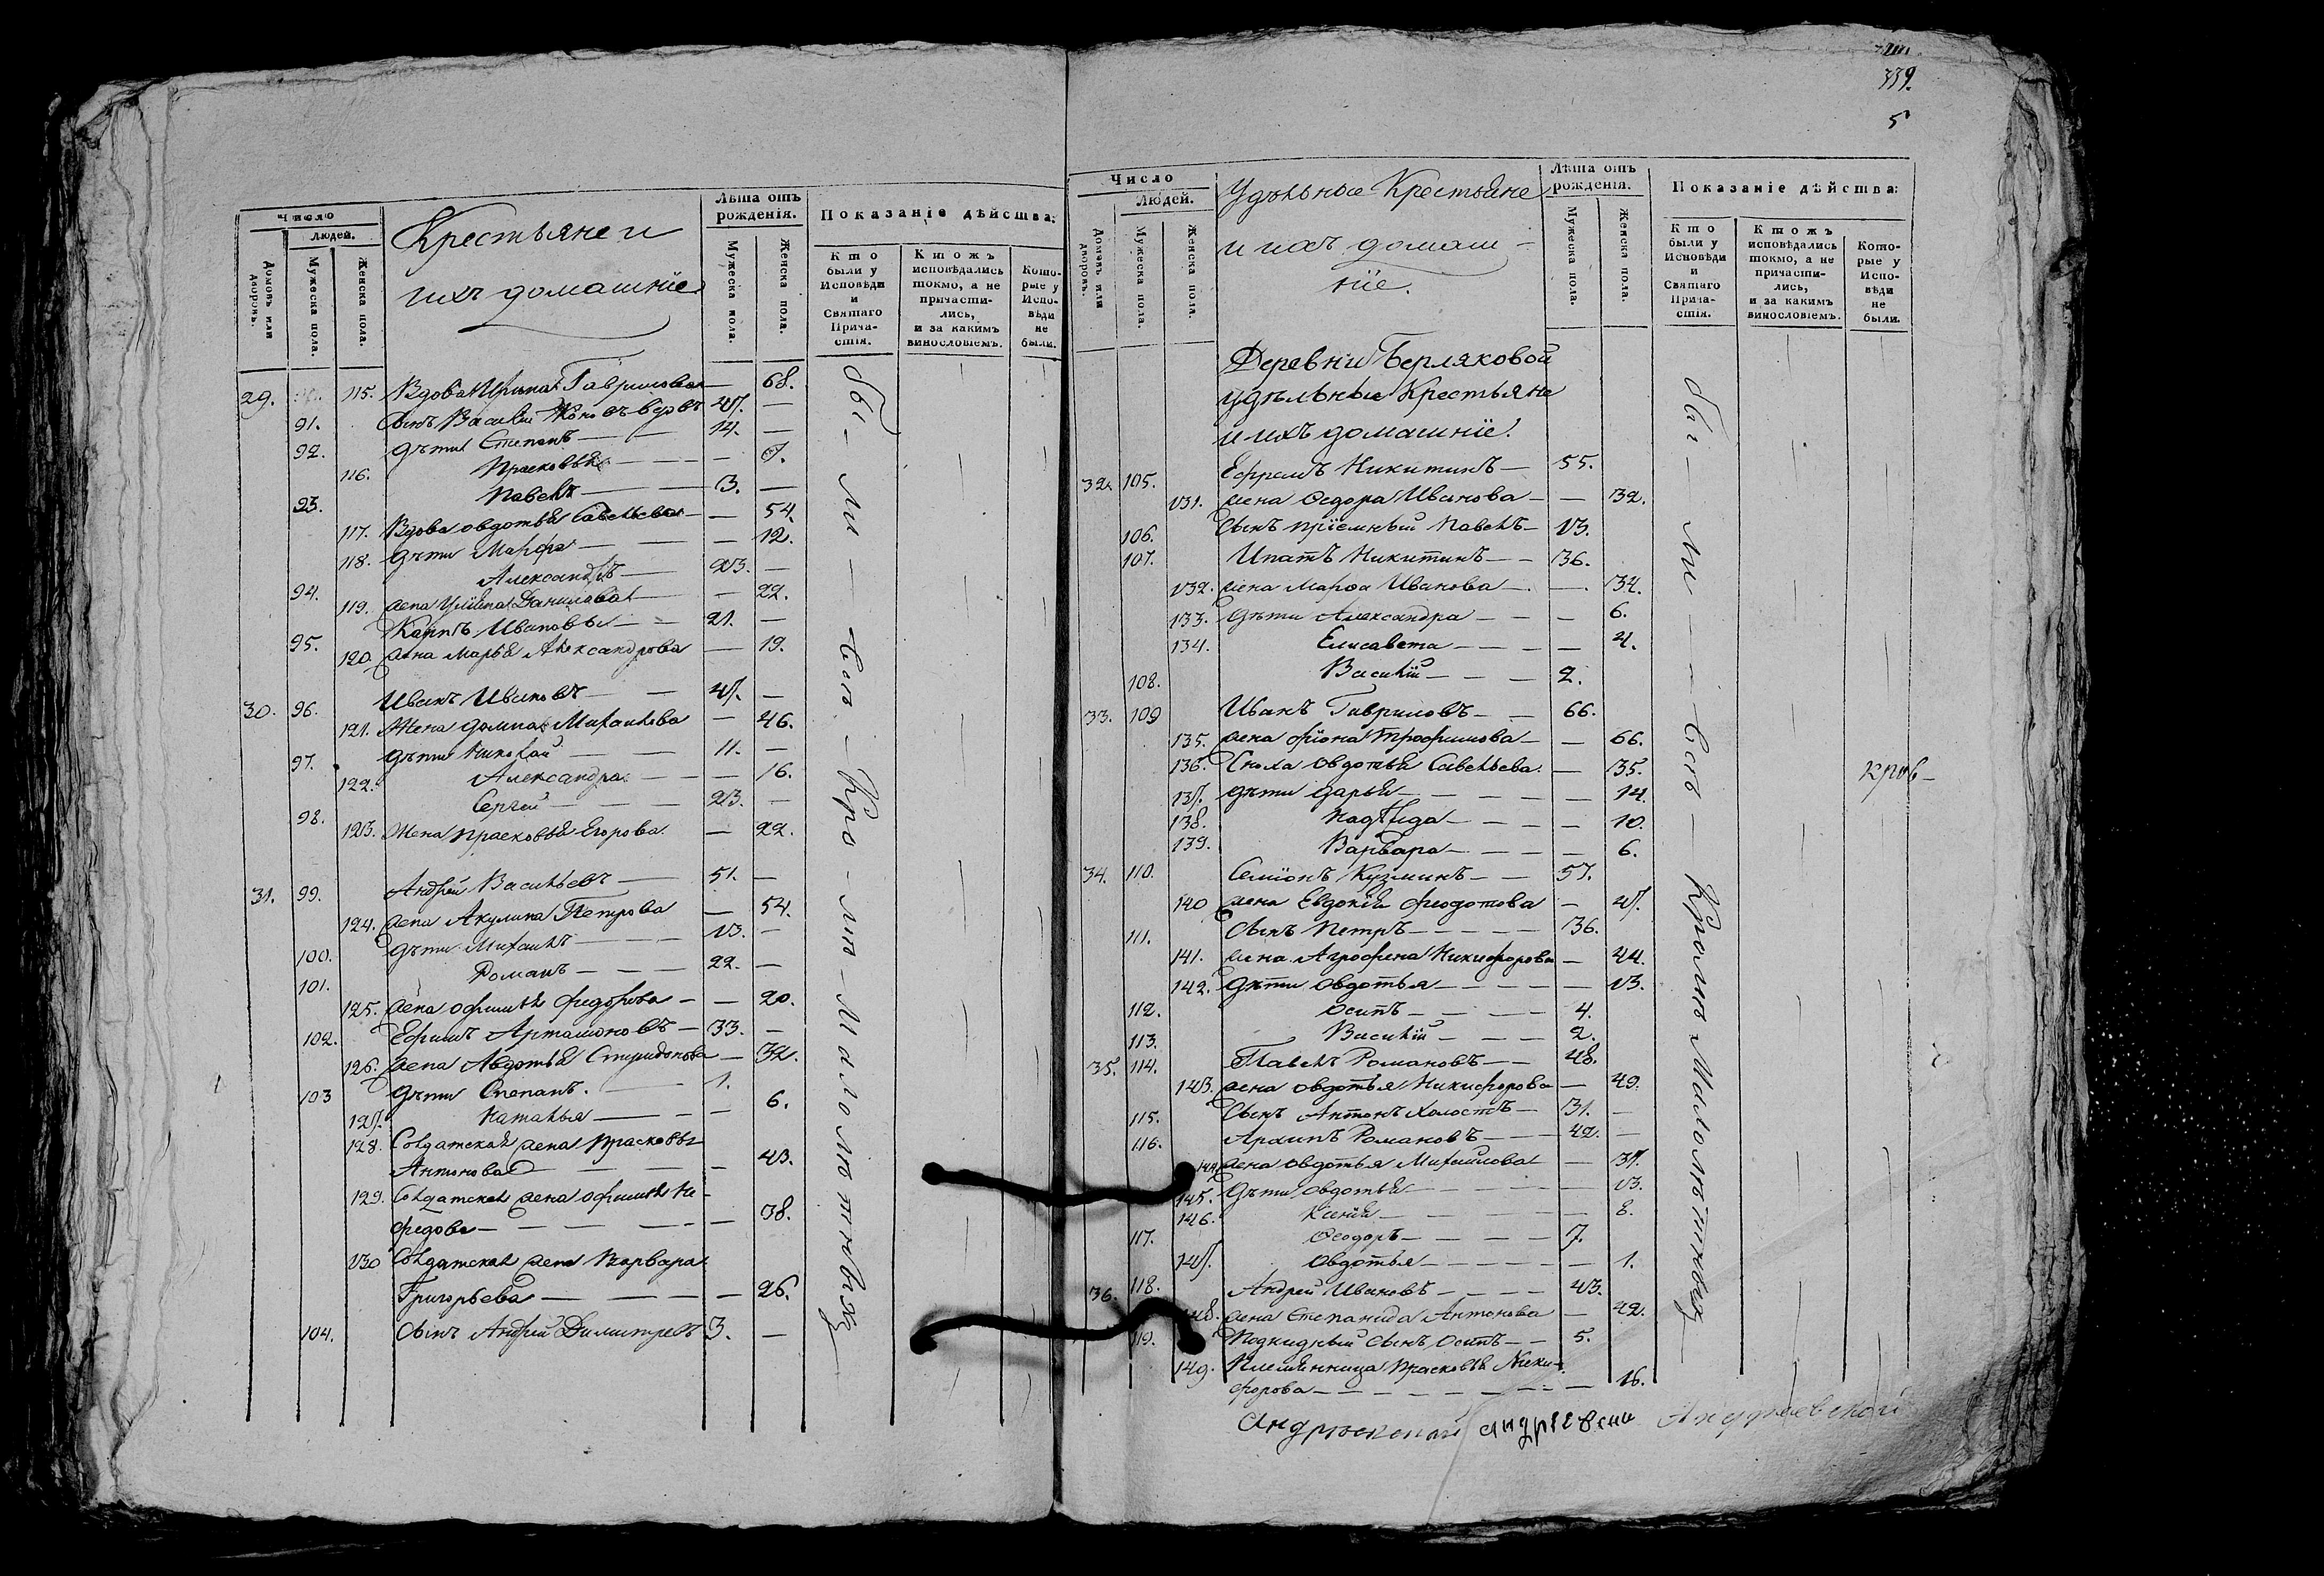 Число
людей.
Домовъ или дворовъ.
Мужеска пола.
Женска пола.
Крестьяне и
ихъ домашніе
Лѣта отъ рожденія.
Мужеска пола.
Женска пола.
Показаніе дѣйства:
Кто были у Исповѣди и Святаго Прича-стія.
Ктожъ исповѣдались токмо, а не причасти-лись, и за какимъ винословіемъ.
Кото-рые у Испо-вѣди не были.
29. 115. Вдова Ирина Гаврилова — 68.
91. Сынъ Василий вдовъ 47. —
92. дѣти Степанъ — 14. —
116. Прасковья — —
93. Павелъ — 3. —
117. Вдова Овдотья Савельева — — 54.
118. дѣти Марфа — — 12.
94. Александръ — 23. —
119. жена Данилова — — 22.
95. Карпъ Ивановъ — 21. —
120. жена Марья Александрова — 19.
30. 96. Иванъ Ивановъ — 47. —
121. Жена Домна Михайлова — 46.
97. дѣти Николай — 11. —
122. Александра — — 16.
98. Сергей — 23. —
123. Жена Прасковья Егорова — 22.
31. 99. Андрей Васильевъ — 51. —
124. жена Акулина Петрова — 54.
100. дѣти Михаилъ — 13. —
101. Романъ — 22. —
125. жена Офимья Федорова — — 20.
102. Ефимъ Артамоновъ — 33. —
126. жена Авдотья Спиридонова — 32.
103 дѣти Степанъ. 1.
127. Наталья — — 6.
128. Солдатская жена Прасковья
Антонова — — 43.
129. Солдатская жена Офимья Не-
федова — — 38.
130 Солдатская жена Варвара
Григорьева — — 26.
104. Сынъ Андрей Димитревъ 3. —
бы-ли — всѣ — кро-мѣ малолѣтныхъ
339.
5
Число
Людей.
Домовъ или дворовъ.
Мужеска пола.
Женска пола.
Удѣльные Крестьяне
и ихъ домаш-
ніе.
Лѣта отъ рожденія.
Мужеска пола.
Женска пола.
Показаніе дѣйства:
Кто были у Исповѣди и Святаго Прича-стія.
Ктожъ исповѣдались токмо, а не причасти-лись, и за какимъ винословіемъ.
Кото-рые у Испо-вѣди не были.
Деревни Берляковой
удѣльные Крестьяне
и ихъ домашніе.
32. 105. Ефремъ Никитинъ — 55.
131. жена Федора Иванова — — 32.
106. Сынъ пріемный Павелъ — 13.
107. Ипатъ Никитинъ — 36.
132. жена Марфа Иванова — — 34.
133. дѣти Александра — — 6.
134. Елисавета — — 4.
108. Василій — 2.
33. 109 Иванъ Гавриловъ — 66.
135. жена Фіона Трофимова — — 66.
136. Сноха Овдотья Савельева — 35.
137. дѣти Дарья — — 14.
138. Надежда — — 10.
139. Варвара — — 6.
34. 110. Семіонъ Кузминъ — 57.
140 жена Евдокія Федотова — 47.
111. Сынъ Петръ — 36.
141. жена Агрофена Никифорова — 44.
142. дѣти Овдотья — — 13.
112. Осипъ — 4.
113. Василій — 2.
35. 114. Павелъ Романовъ — 48.
143. жена Овдотья Никифорова — 49.
115. Сынъ Антонъ холостъ — 31. —
116. Архипъ Романовъ — 42. —
144. жена Овдотья Михайлова — 37.
145. дѣти Овдотья — — 13.
146. Ксенія — — 8.
117. Феодоръ — 7.
147. Овдотья — — 1.
36. 118. Андрей Ивановъ — 43.
148. жена Степанида Антонова — 42.
119. Подкидный сынъ Осипъ — 5.
149. Племянница Прасковья Ники-
форова — — 16.
бы-ли — всѣ — кромѣ малолѣтныхъ